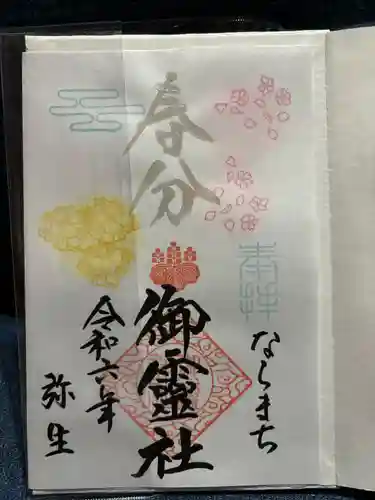 奉拝
ならまち
春分
御靈社
令和六年
弥生